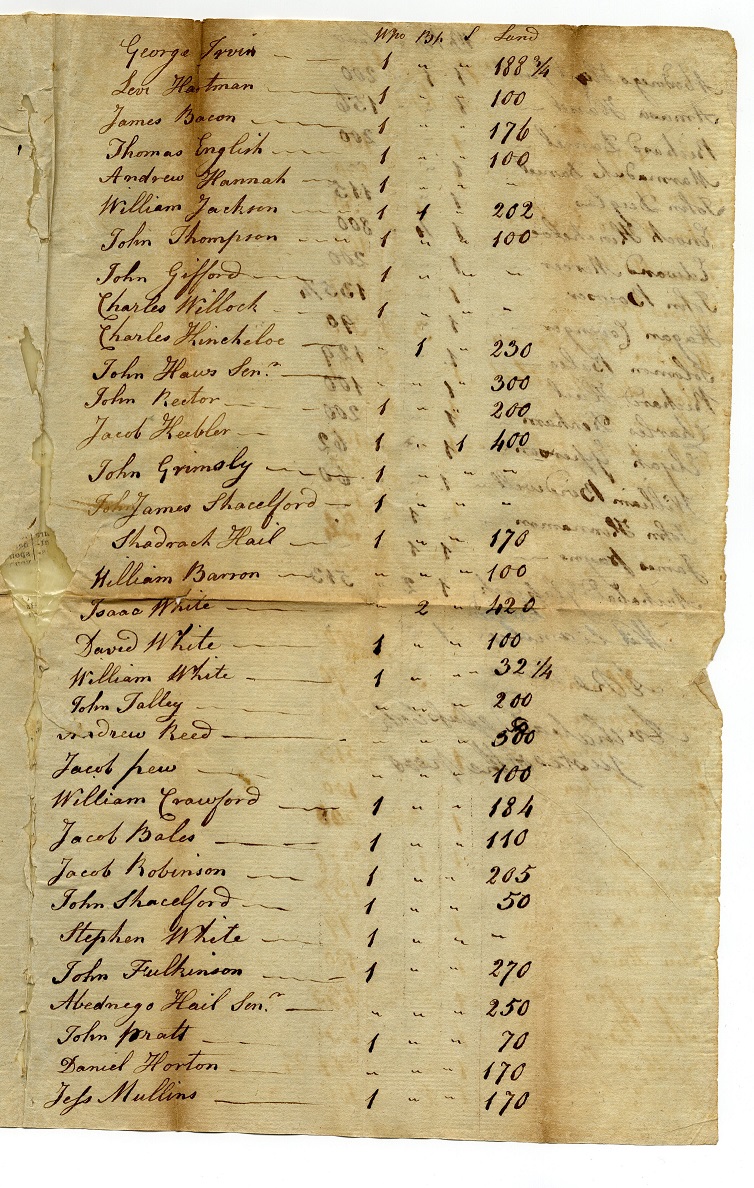 Wpo Bp. S Land
George Irvin 1 " " 188 3/4
Levi Hartman 1 " " 100
James Bacon 1 " " 176
Thomas English 1 " " 100
Andrew Hannah 1 " " "
William Jackson 1 1 " 202
John Thompson 1 " " 100
John Gifford 1 " " "
Charles Willock 1 " " "
Charles Hincheloe " 1 " 230
John Haws Senr. " " " 300
John Rector 1 " " 200
Jacob Keebler 1 " 1 400
John Grimsly 1 " " "
James Shacelford 1 " " "
Shadrach Hail 1 " " 170
William Barron " " " 100
Isaac White " 2 " 420
David White 1 " " 100
William White 1 " " 32 1/4
John Talley " " " 200
Andrew Reed " " " 500
Jacob pew " " " 100
William Crawford 1 " " 184
Jacob Bales 1 " " 110
Jacob Robinson 1 " " 205
John Shacelford 1 " " 50
Stephen White 1 " " "
John Fulkinson 1 " " 270
Abednego Hail Senr. " " " 250
John pratt 1 " " 70
Daniel Horton " " " 170
Jess Mullins 1 " " 170